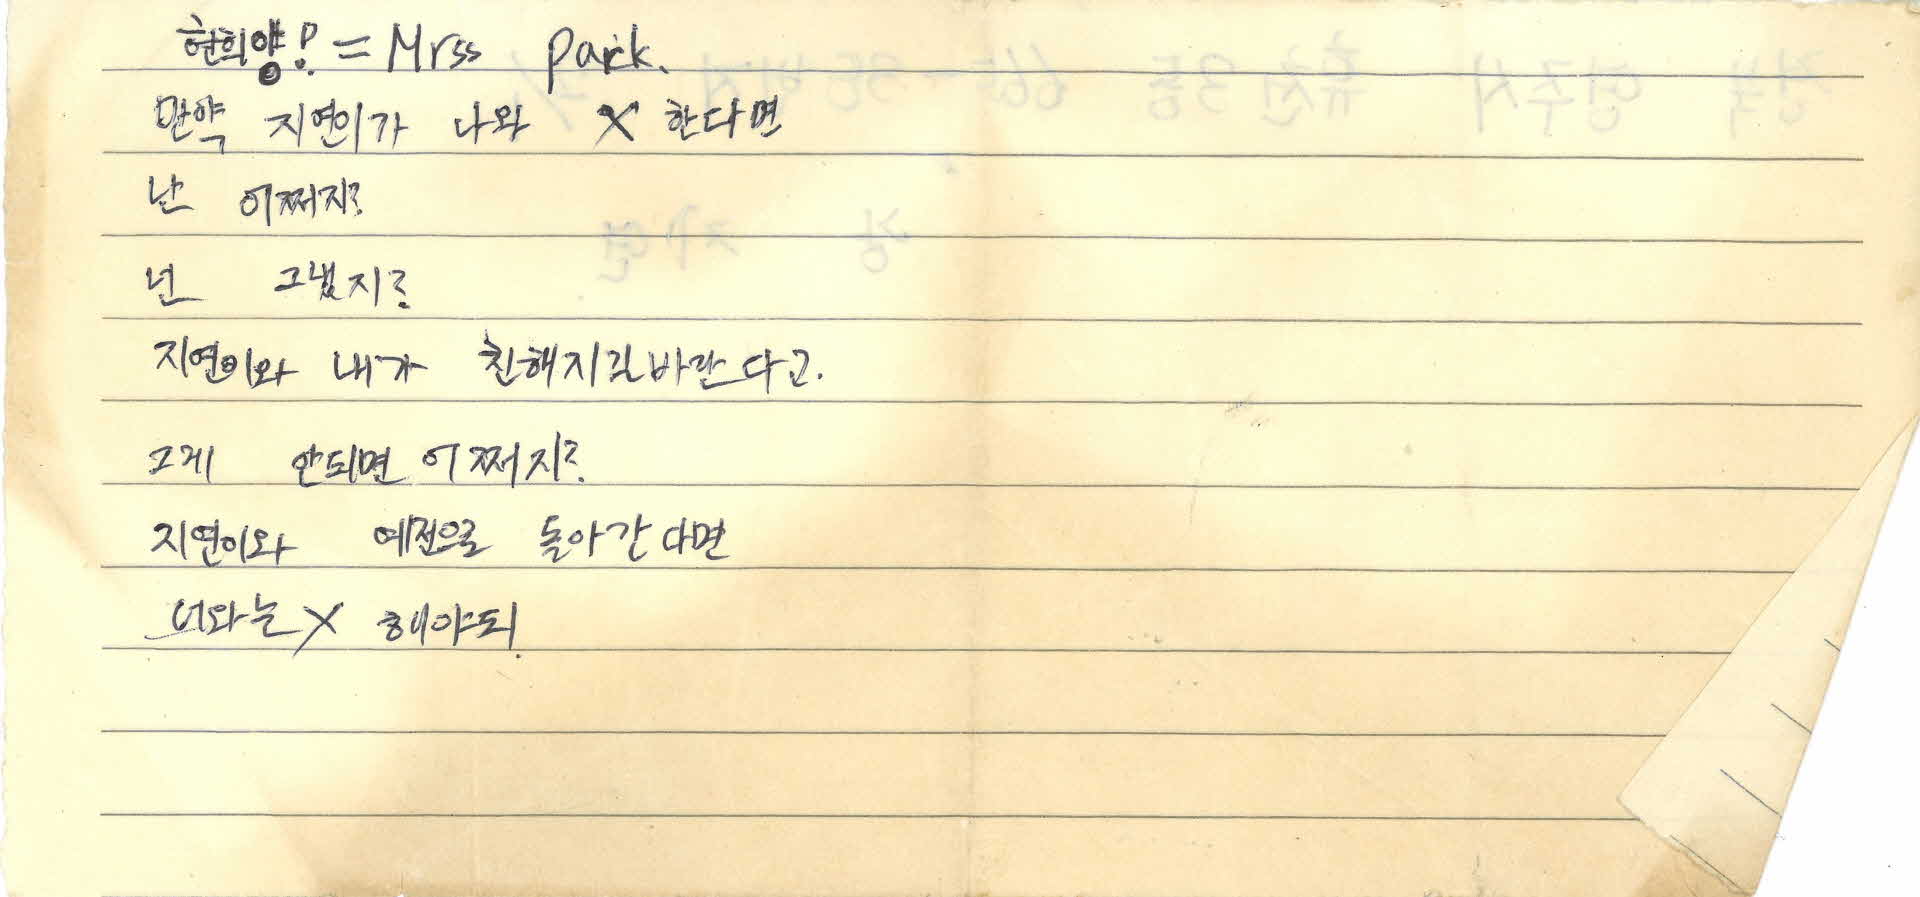 현희양! = Mrss park.
만약 지연이가 나와 X 한다면
난 어쩌지?
넌 그랬지?
지연이와 내가 친해지길바란다고.
그게 안되면 어쩌지?
지연이와 예전으로 돌아간다면
너와는 X 해야되.